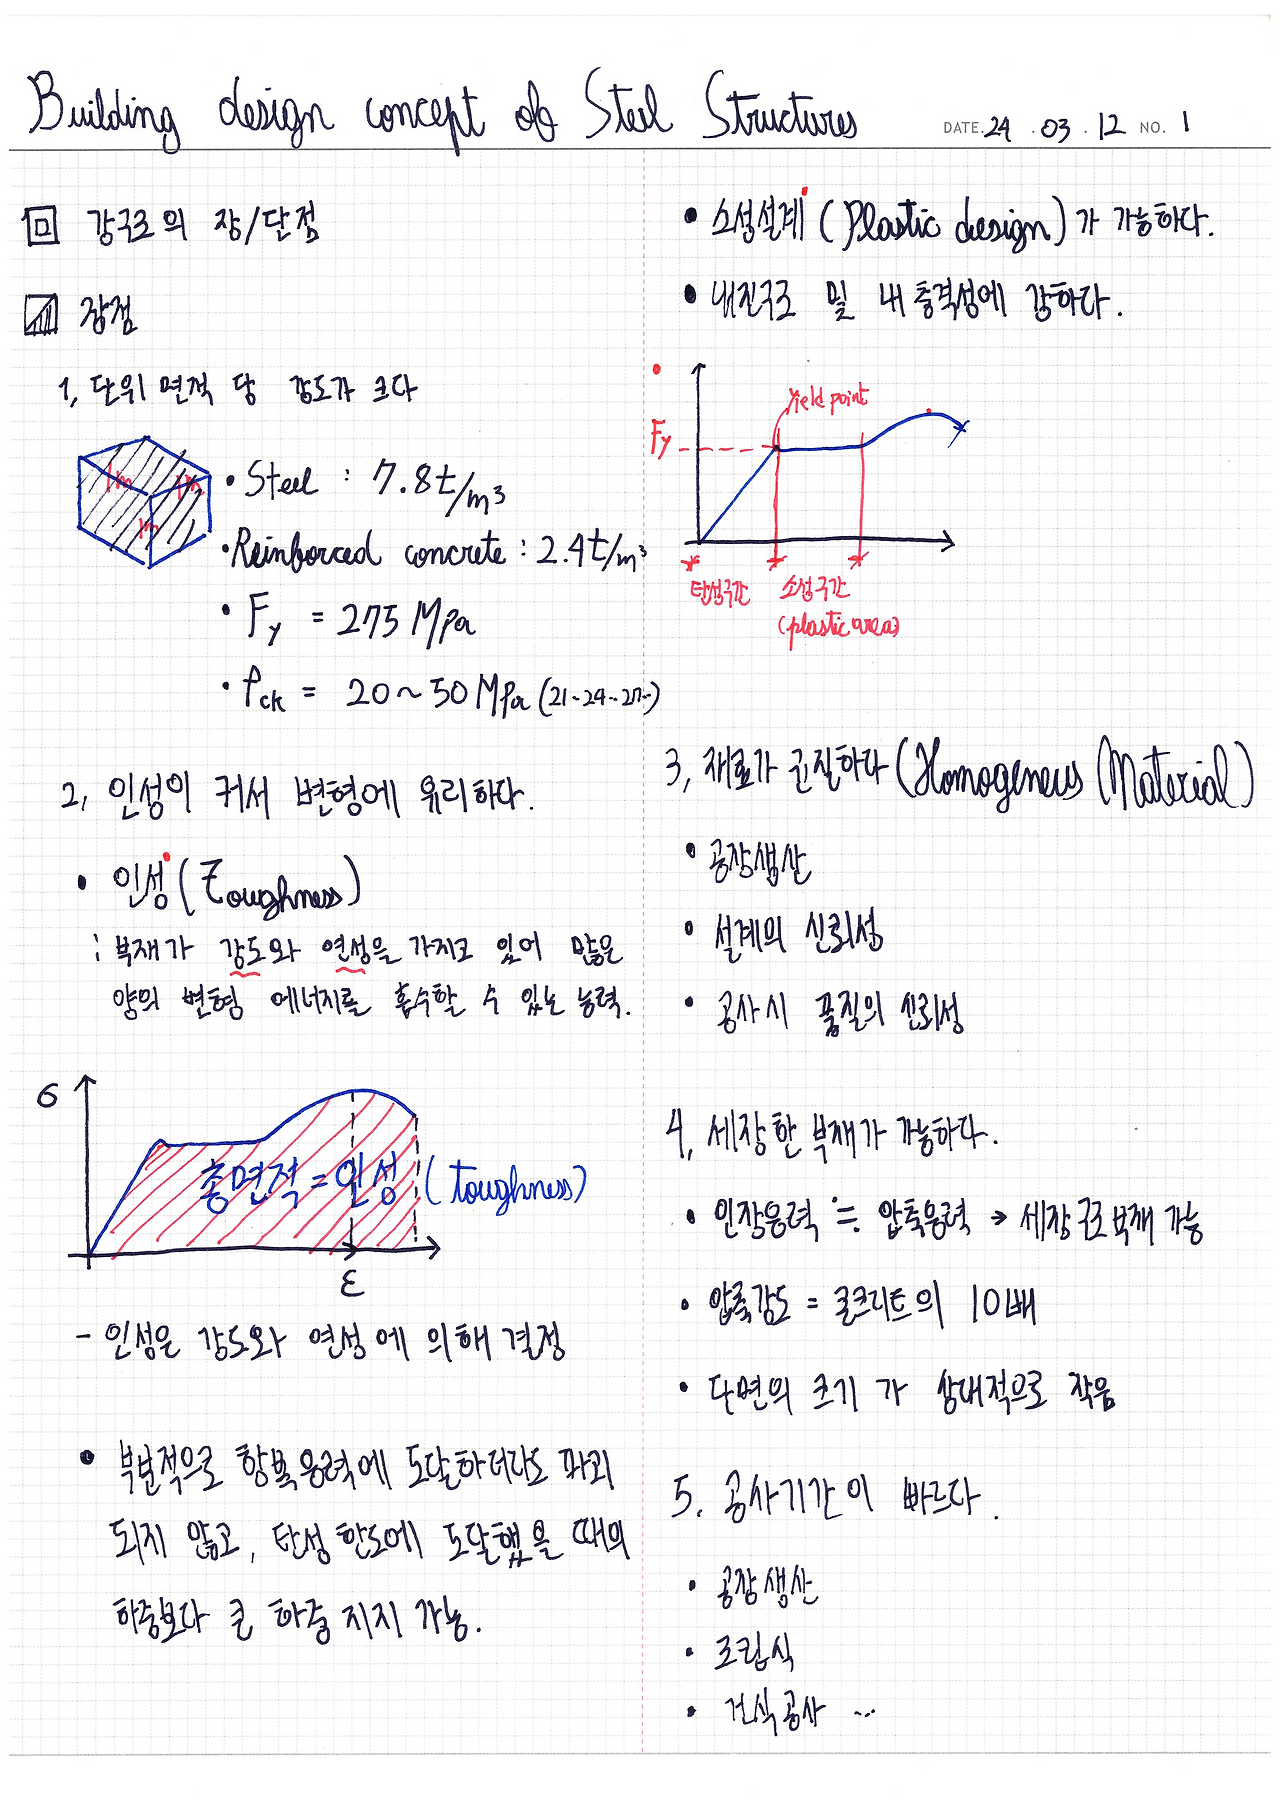 Building design concept of Steel Structures
DATE. 24 . 03 . 12 NO. 1
강구조의 장/단점
장점
1, 단위 면적 당 강도가 크다
1m 1m 1m
• Steel : 7.8t/m³
• Reinforced concrete : 2.4t/m³
• Fy = 275 MPa
• fck = 20~50 MPa (21~24~27~)
2, 인성이 커서 변형에 유리하다.
• 인성 (Toughness)
: 부재가 강도와 연성을 가지고 있어 많은
양의 변형 에너지를 흡수할 수 있는 능력.
σ
총면적 = 인성 (toughness)
ε
- 인성은 강도와 연성에 의해 결정
• 부분적으로 항복응력에 도달하더라도 파괴
되지 않고, 탄성 한도에 도달했을 때의
하중보다 큰 하중 지지 가능.
• 소성설계 (Plastic design)가 가능하다.
• 내진구조 및 내충격성에 강하다.
yield point
Fy
탄성구간 소성구간
(plastic area)
3, 재료가 균질하다 (Homogeneus Material)
• 공장생산
• 설계의 신뢰성
• 공사시 품질의 신뢰성
4, 세장한 부재가 가능하다.
• 인장응력 ≒ 압축응력 → 세장 구조부재 가능
• 압축강도 = 콘크리트의 10배
• 단면의 크기가 상대적으로 작음
5. 공사기간이 빠르다.
• 공장생산
• 조립식
• 건식공사 ...